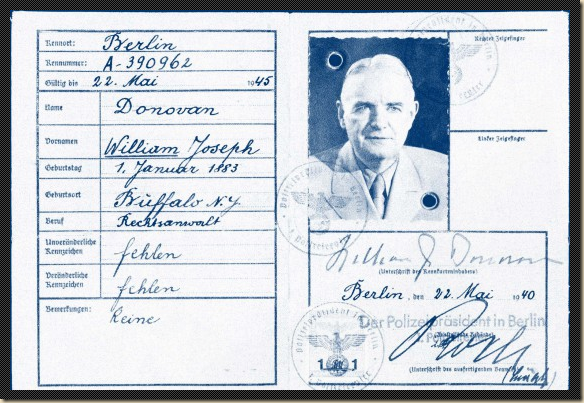 Kennort: Berlin
Kennummer: A-390962
Gültig bis 22. Mai 1945
Name Donovan
Vornamen William Joseph
Geburtstag 1. Januar 1883
Geburtsort Buffalo N.Y.
Beruf Rechtsanwalt
Unveränderliche
Kennzeichen fehlen
Veränderliche
Kennzeichen fehlen
Bemerkungen: Keine
Rechter Zeigefinger
Linker Zeigefinger
William J. Donovan
(Unterschrift des Kennkarteninhabers)
Berlin, den 22. Mai 1940
Der Polizeipräsident in Berlin
(Unterschrift des ausfertigenden Beamten)
Polizeipräsident in Berlin
1 1